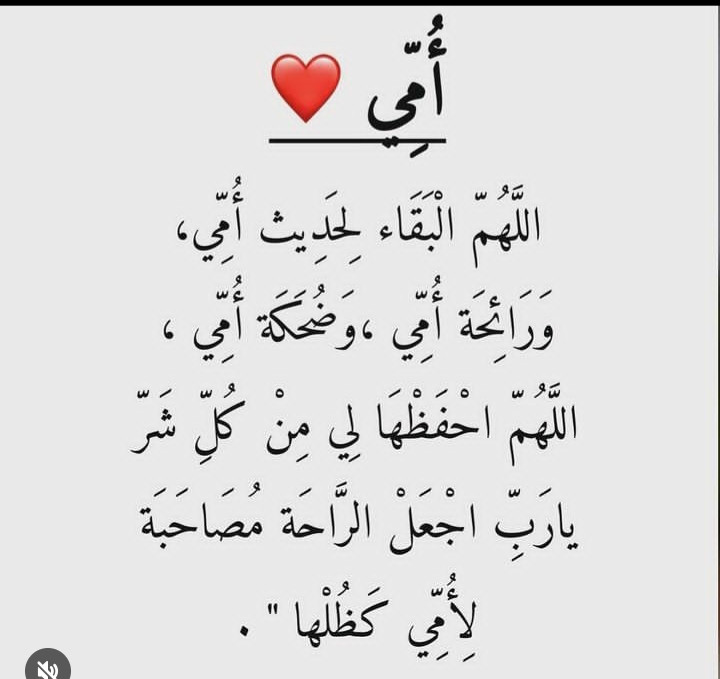 أُمِّي ❤️
اللَّهُمّ الْبَقَاء لِحَدِيث أُمِّي،
وَرَائِحَة أُمِّي ،وَضُحَكَة أُمِّي ،
اللَّهُمّ احْفَظْهَا لِي مِنْ كُلِّ شَرّ
يارَبِّ اجْعَلْ الرَّاحَة مُصَاحَبَة
لِأُمِّي كَظُلْها " .